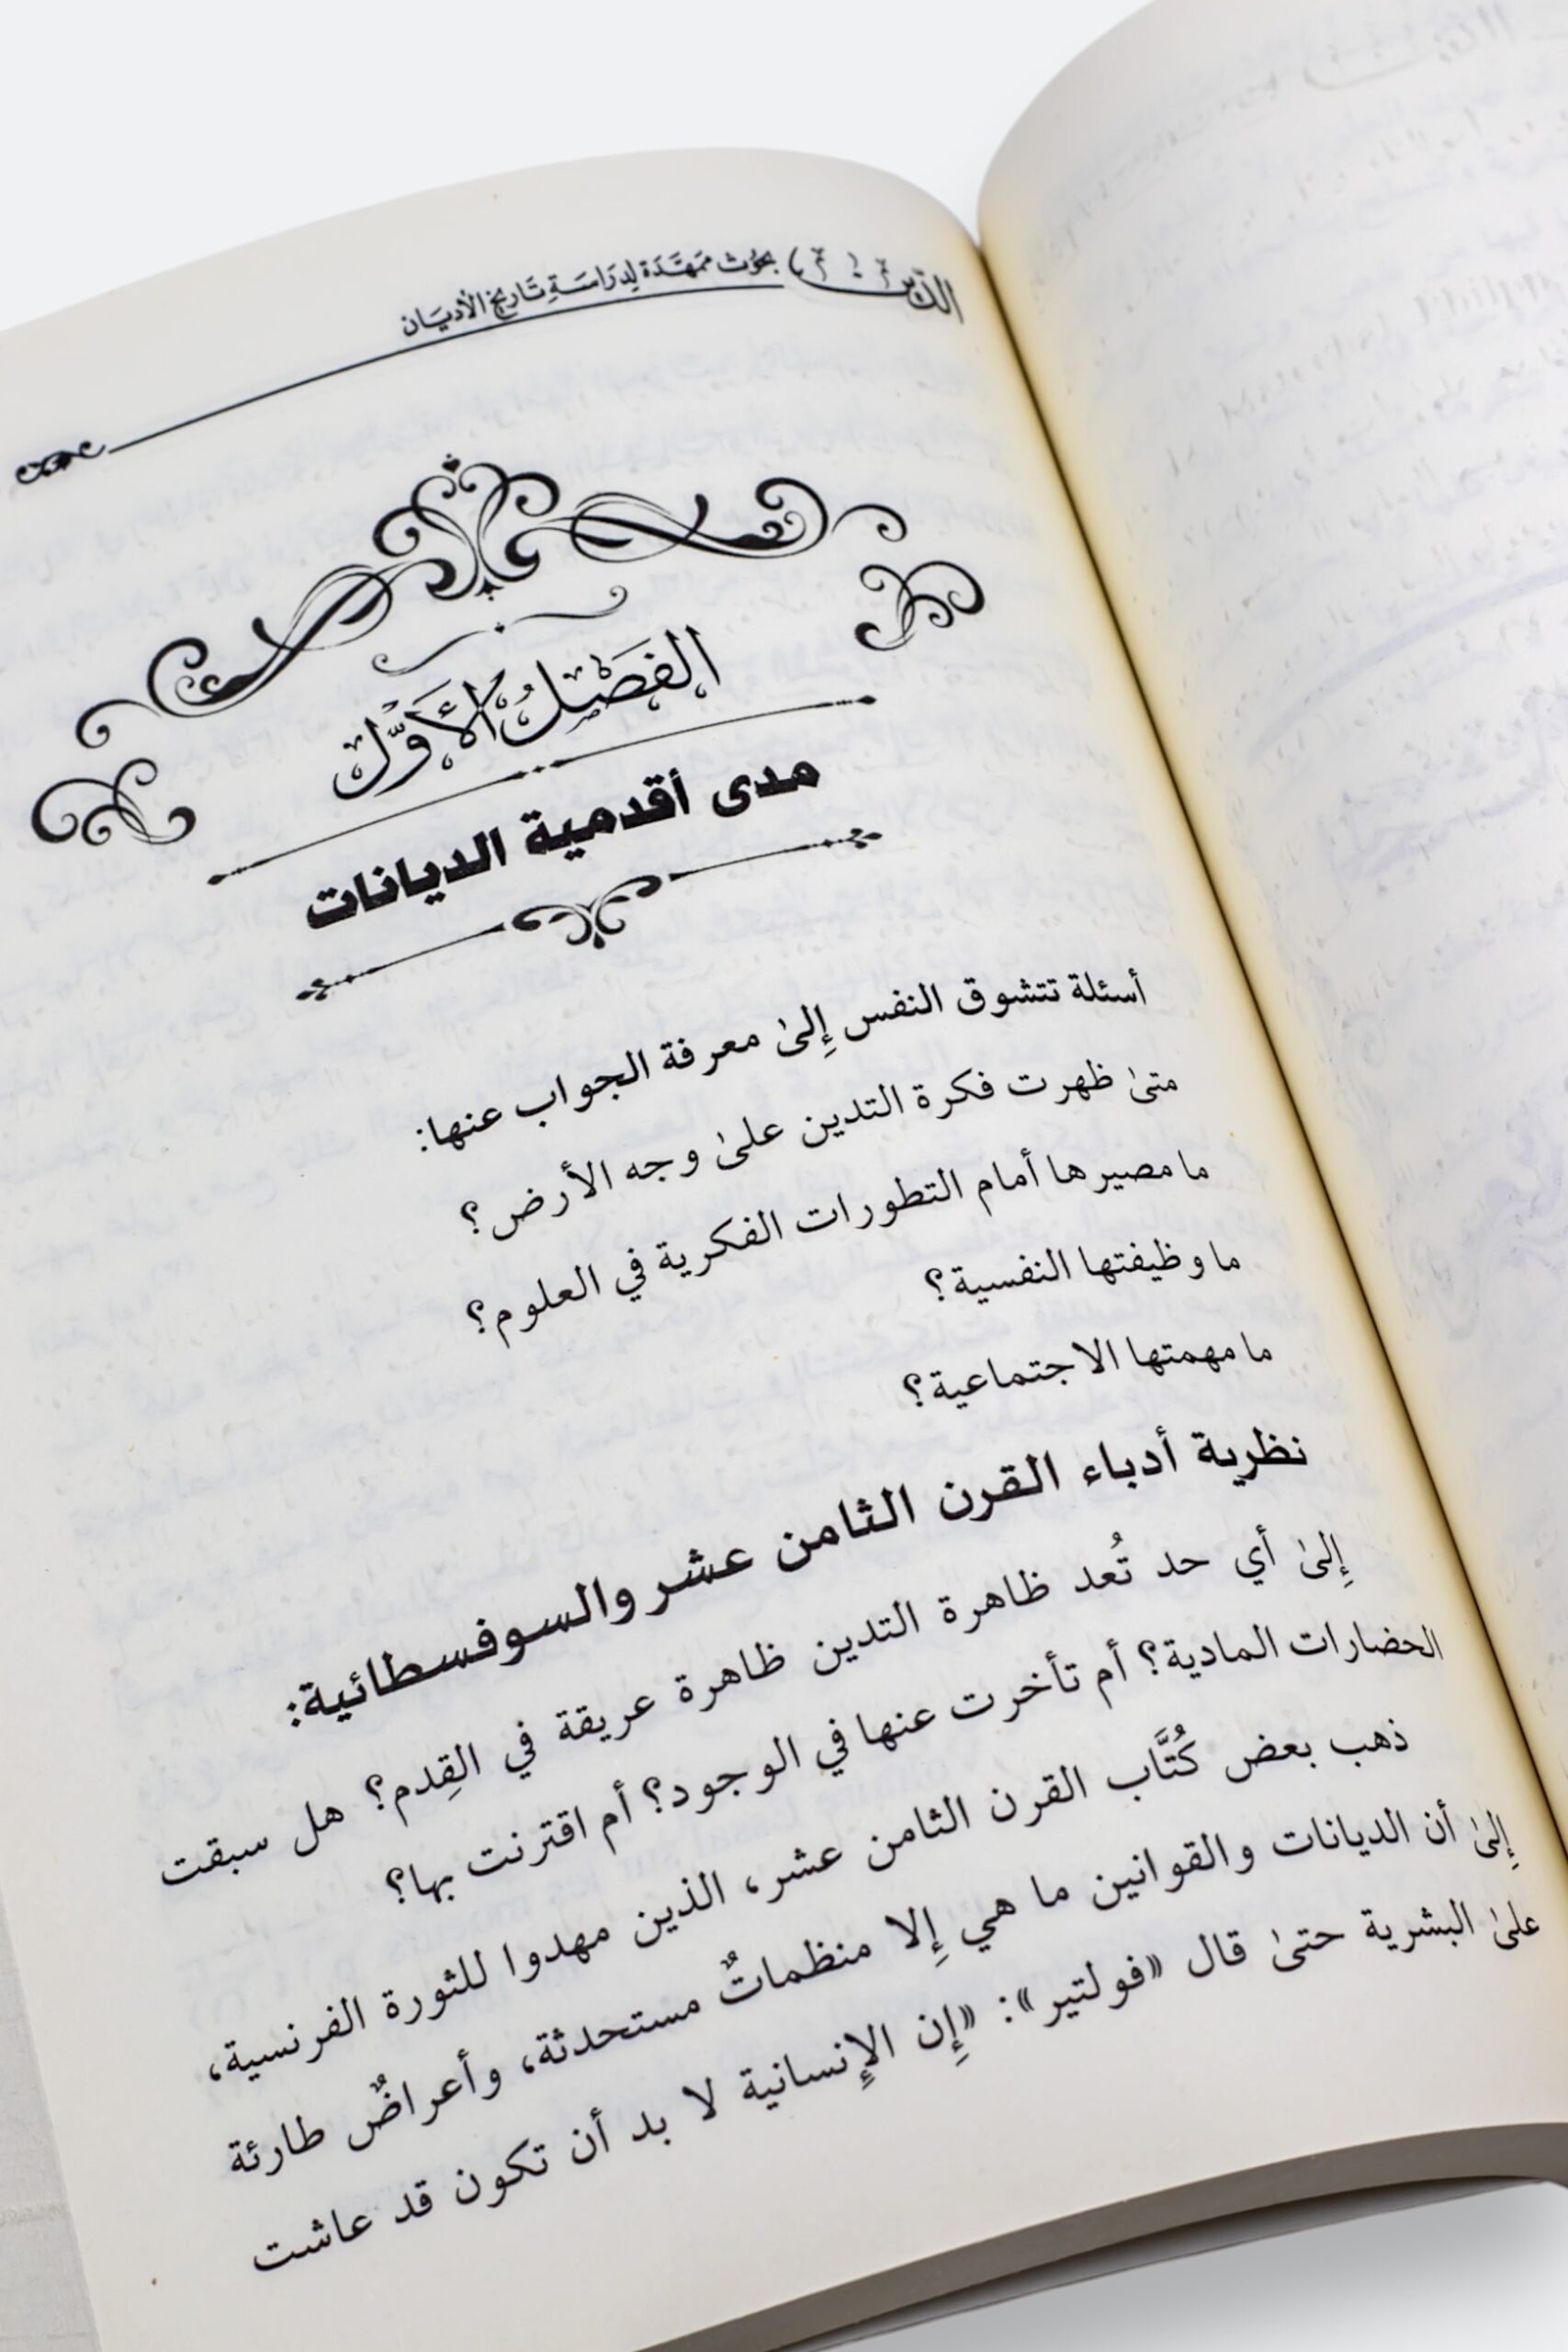 الدين بحوث ممهدة لدراسة تاريخ الأديان
الفصل الأول
مدى أقدمية الديانات
أسئلة تتشوق النفس إِلىٰ معرفة الجواب عنها:
متىٰ ظهرت فكرة التدين علىٰ وجه الأرض؟
ما مصيرها أمام التطورات الفكرية في العلوم؟
ما وظيفتها النفسية؟
ما مهمتها الاجتماعية؟
نظرية أدباء القرن الثامن عشر والسوفسطائية:
إِلىٰ أي حد تُعد ظاهرة التدين ظاهرة عريقة في القِدم؟ هل سبقت
الحضارات المادية؟ أم تأخرت عنها في الوجود؟ أم اقترنت بها؟
ذهب بعض كُتَّاب القرن الثامن عشر، الذين مهدوا للثورة الفرنسية،
إِلىٰ أن الديانات والقوانين ما هي إِلا منظماتٌ مستحدثة، وأعراضٌ طارئة
علىٰ البشرية حتىٰ قال «فولتير»: «إِن الإِنسانية لا بد أن تكون قد عاشت